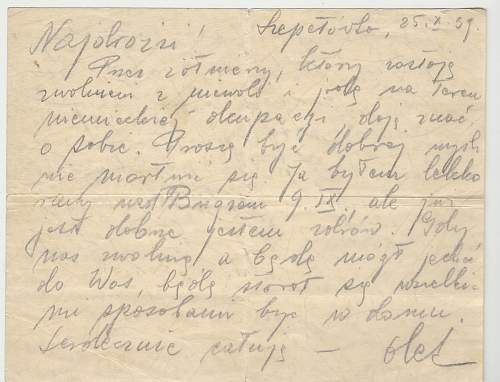 Najdrożsi! Szepetówka, 25.X.39.
Przez żołnierzy, którzy zostają
zwolnieni z niewoli i jadą na teren
niemieckiej okupacji daję znać
o sobie. Proszę być dobrej myśli
nie martwić się. Ja byłem lekko
ranny nad Bugiem 9.IX. ale już
jest dobrze jestem zdrów. Gdy
nas zwolnią a będę mógł jechać
do Was, będę starał się wszelki-
mi sposobami być w domu.
Serdecznie całuję — Olek